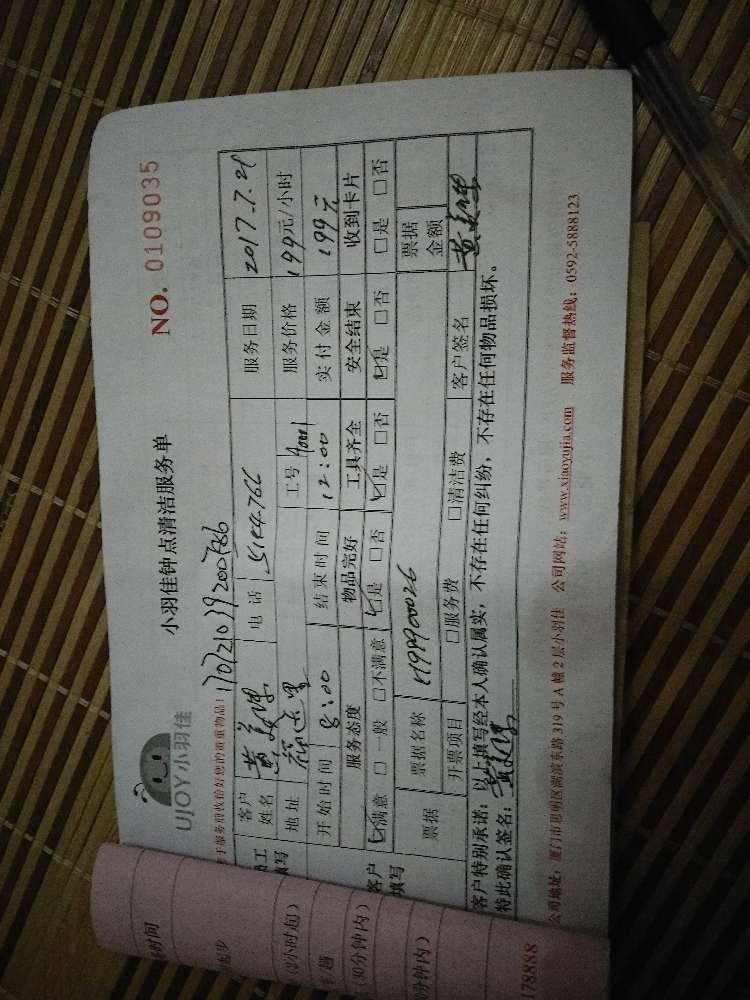 NO. 0109035
UJOY小羽佳
小羽佳钟点清洁服务单
服务前收拾好您的贵重物品!
客户姓名 电话 服务日期 2017.7.21
地址 工号 服务价格 199元/小时
开始时间 8:00 结束时间 12:00 实付金额 199元
服务态度 物品完好 工具齐全 安全结束 收到卡片
☑满意 □一般 □不满意 ☑是 □否 ☑是 □否 ☑是 □否 □是 □否
填写
客户填写
票据 票据名称 票据金额
开票项目 □服务费 □清洁费 客户签名
客户特别承诺:以上填写经本人确认属实,不存在任何纠纷,不存在任何物品损坏。
特此确认签名:
公司地址:厦门市思明区湖滨东路319号A幢2层小羽佳 公司网站:www.xiaoyujia.com 服务监督热线:0592-5888123
时间
起步
(2小时起)
(30分钟内)
分钟内)
178888